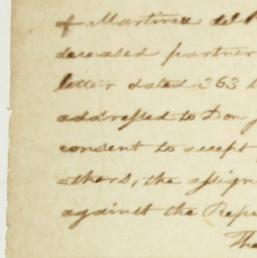 of Martinez del
deceased partner
letter dated 363
addressed to Don
consent to accept
others, the assign
against the Repu
The